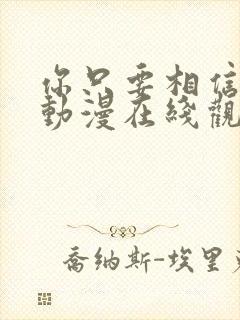 你只要相信
動漫在綫觀
喬納斯-埃里